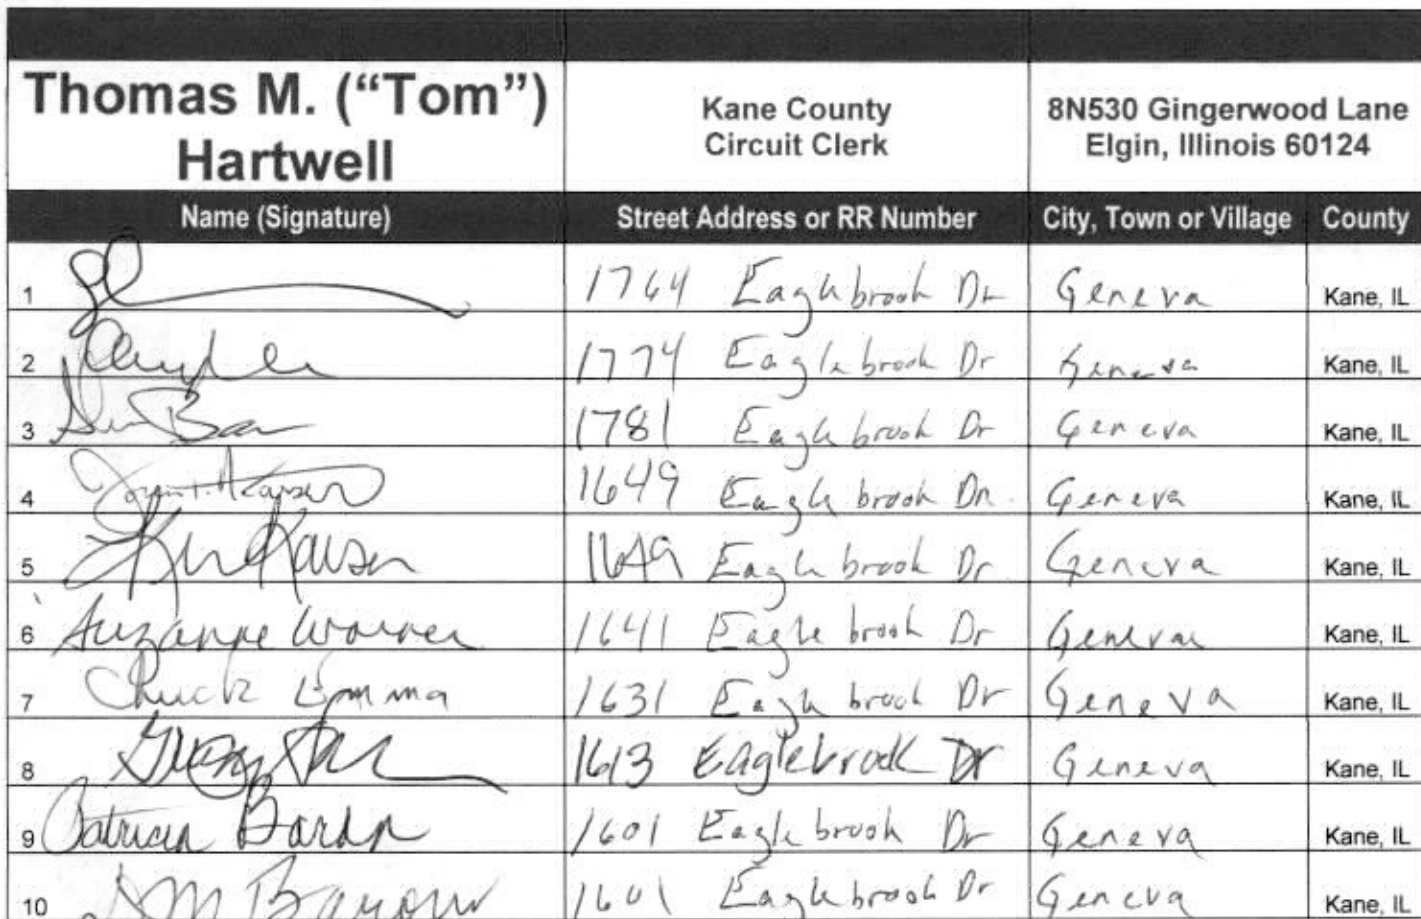 Thomas M. ("Tom") Hartwell
Kane County Circuit Clerk
8N530 Gingerwood Lane Elgin, Illinois 60124
Name (Signature) Street Address or RR Number City, Town or Village County
1 1764 Eaglebrook Dr Geneva Kane, IL
2 1774 Eaglebrook Dr Geneva Kane, IL
3 1781 Eaglebrook Dr Geneva Kane, IL
4 1649 Eaglebrook Dr. Geneva Kane, IL
5 Kaiser 1649 Eaglebrook Dr Geneva Kane, IL
6 Suzanne 1641 Eaglebrook Dr Geneva Kane, IL
7 Chuck Emma 1631 Eaglebrook Dr Geneva Kane, IL
8 1613 Eaglebrook Dr Geneva Kane, IL
9 Patricia 1601 Eaglebrook Dr Geneva Kane, IL
10 1601 Eaglebrook Dr Geneva Kane, IL